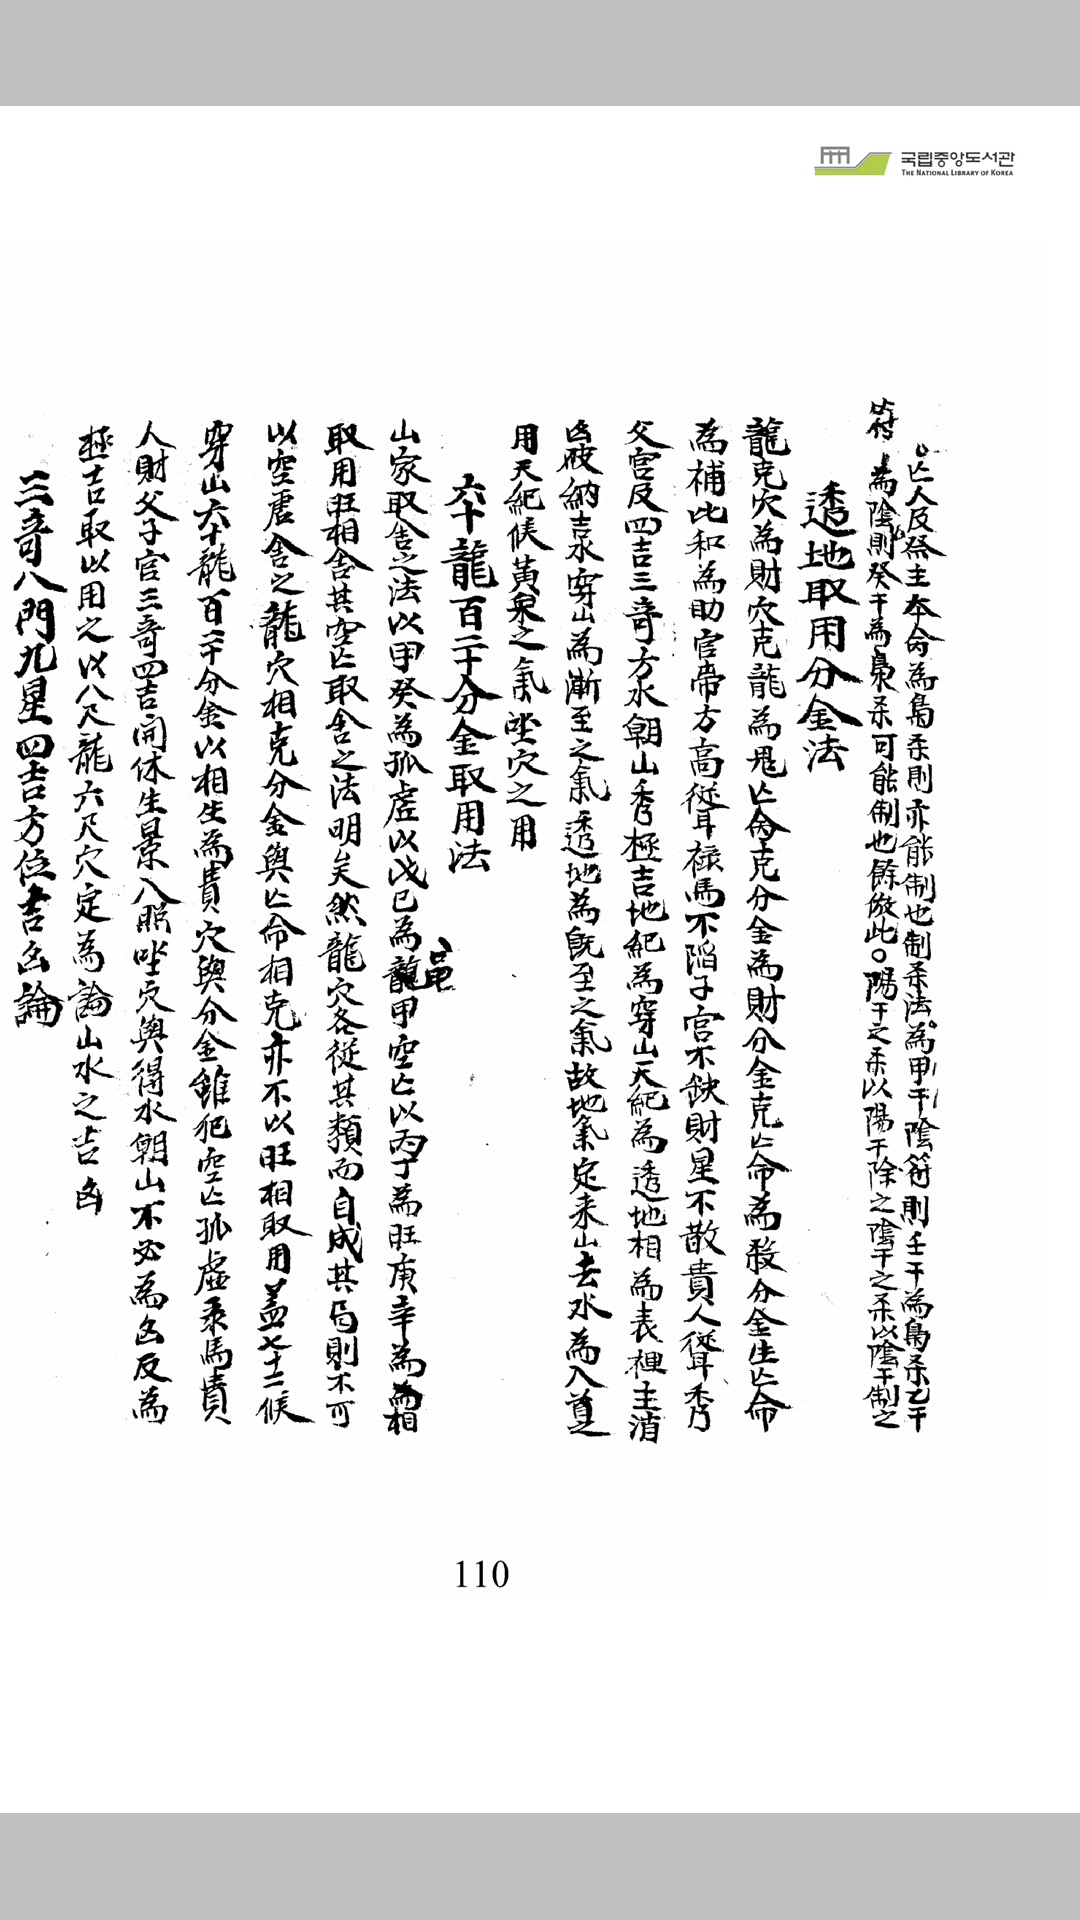 국립중앙도서관
THE NATIONAL LIBRARY OF KOREA
亡人反祭主本命為梟杀則亦能制也制杀法為甲干陰符則壬干為梟杀乙干
符為陰則癸干為梟杀可能制也餘倣此○陽干之杀以陽干除之陰干之杀以陰干制之
透地取用分金法
龍克穴為財穴克龍為鬼亡命克分金為財分金克亡命為殺分金生亡命
為補比和為助官帝方高聳祿馬不陷子宮不缺財星不散貴人聳秀
父宮反四吉三奇方水朝山秀極吉地紀為穿山天紀為透地相為表裡主消
凶破納吉水穿山為漸至之氣透地為既至之氣故地氣定来山去水為入首之
用天紀候黃泉之氣坐穴之用
六十龍百二十分金取用法
山家取舍之法以甲癸為孤虛以戊己為龜甲空亡以丙丁為旺庚辛為相
取用旺相舍其空亡取舍之法明矣然龍穴各從其類而自成其局則不可
以空虛舍之龍穴相克分金與亡命相克亦不以旺相取用盖七十二候
穿山六十龍百二十分金以相生為貴穴與分金雖犯空亡孤虛乘馬貴
人財父子官三奇四吉開休生景入照坐穴與得水朝山不必為凶反為
極吉取以用之以八尺龍六尺穴定為論山水之吉凶
三奇八門九星四吉方位吉凶論
110